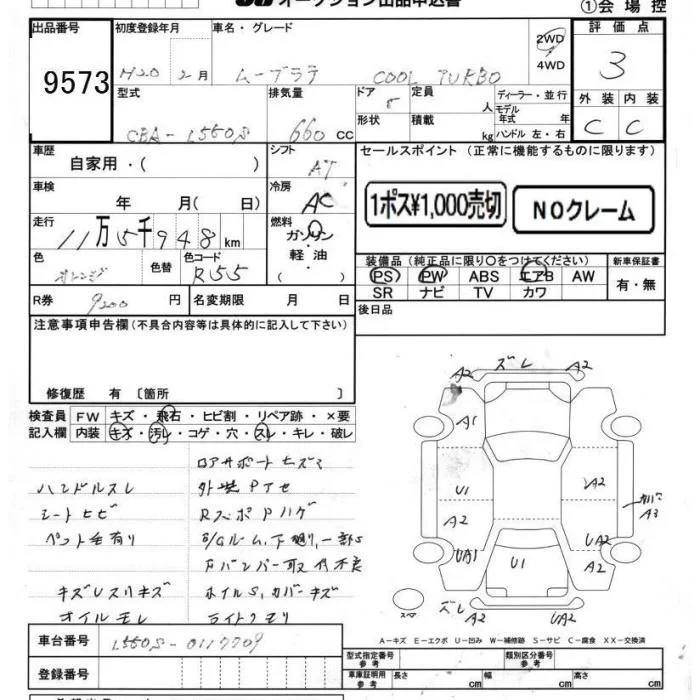 オークション出品申込書
①会場控
出品番号
9573
初度登録年月
H20 2月
車名・グレード
ムーブラテ COOL TURBO
2WD
4WD
評価点
3
型式
CBA-L550S
排気量
660 CC
ドア
5
形状
定員
人
積載
kg
ディーラー・並行
モデル
年式
年
ハンドル 左・右
外装
内装
C
C
車歴
自家用・( )
シフト
AT
セールスポイント (正常に機能するものに限ります)
1ポス¥1,000売切
NOクレーム
車検
年 月( 日)
冷房
AC
走行
11万5千948km
燃料
ガソリン
軽油
( )
色
オレンジ
色替
色コード
R55
装備品(純正品に限り○をつけてください)
PS PW ABS エアB AW
SR ナビ TV カワ
新車保証書
有・無
R券
9200円
名変期限 月 日
後日品
注意事項申告欄(不具合内容等は具体的に記入して下さい)
修復歴 有〔箇所 〕
検査員
記入欄
FW
キズ・飛石・ヒビ割・リペア跡・×要
内装
キズ・汚レ・コゲ・穴・スレ・キレ・破レ
ハンドルスレ
シートヒビ
ペット毛有り
キズUスリキズ
オイルモレ
ロアサポートヒズミ
外装Pヤセ
RスポPハゲ
E/Gルーム、下廻り、一部S
Fバンパー取付不良
ホイルS、カバーキズ
ライトクモリ
A2 ズレ A2
A1
U1
A2
A2
UA2
UA1
U1
A2
A3
ズレ A2 UA2
A-キズ E-エクボ U-凹み W-補修跡 S-サビ C-腐食 XX-交換済
車台番号
L550S-0117709
登録番号
型式指定番号
参考
類別区分番号
参考
車庫証明用
参考
長さ
cm
幅
cm
高さ
cm